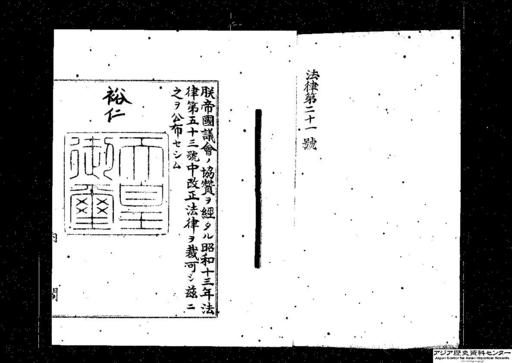 法律第二十一號
朕帝國議會ノ協賛ヲ經タル昭和十三年法
律第五十三號中改正法律ヲ裁可シ茲ニ
之ヲ公布セシム
裕仁
天皇
御璽
內閣
アジア歴史資料センター
Japan Center for Asian Historical Records